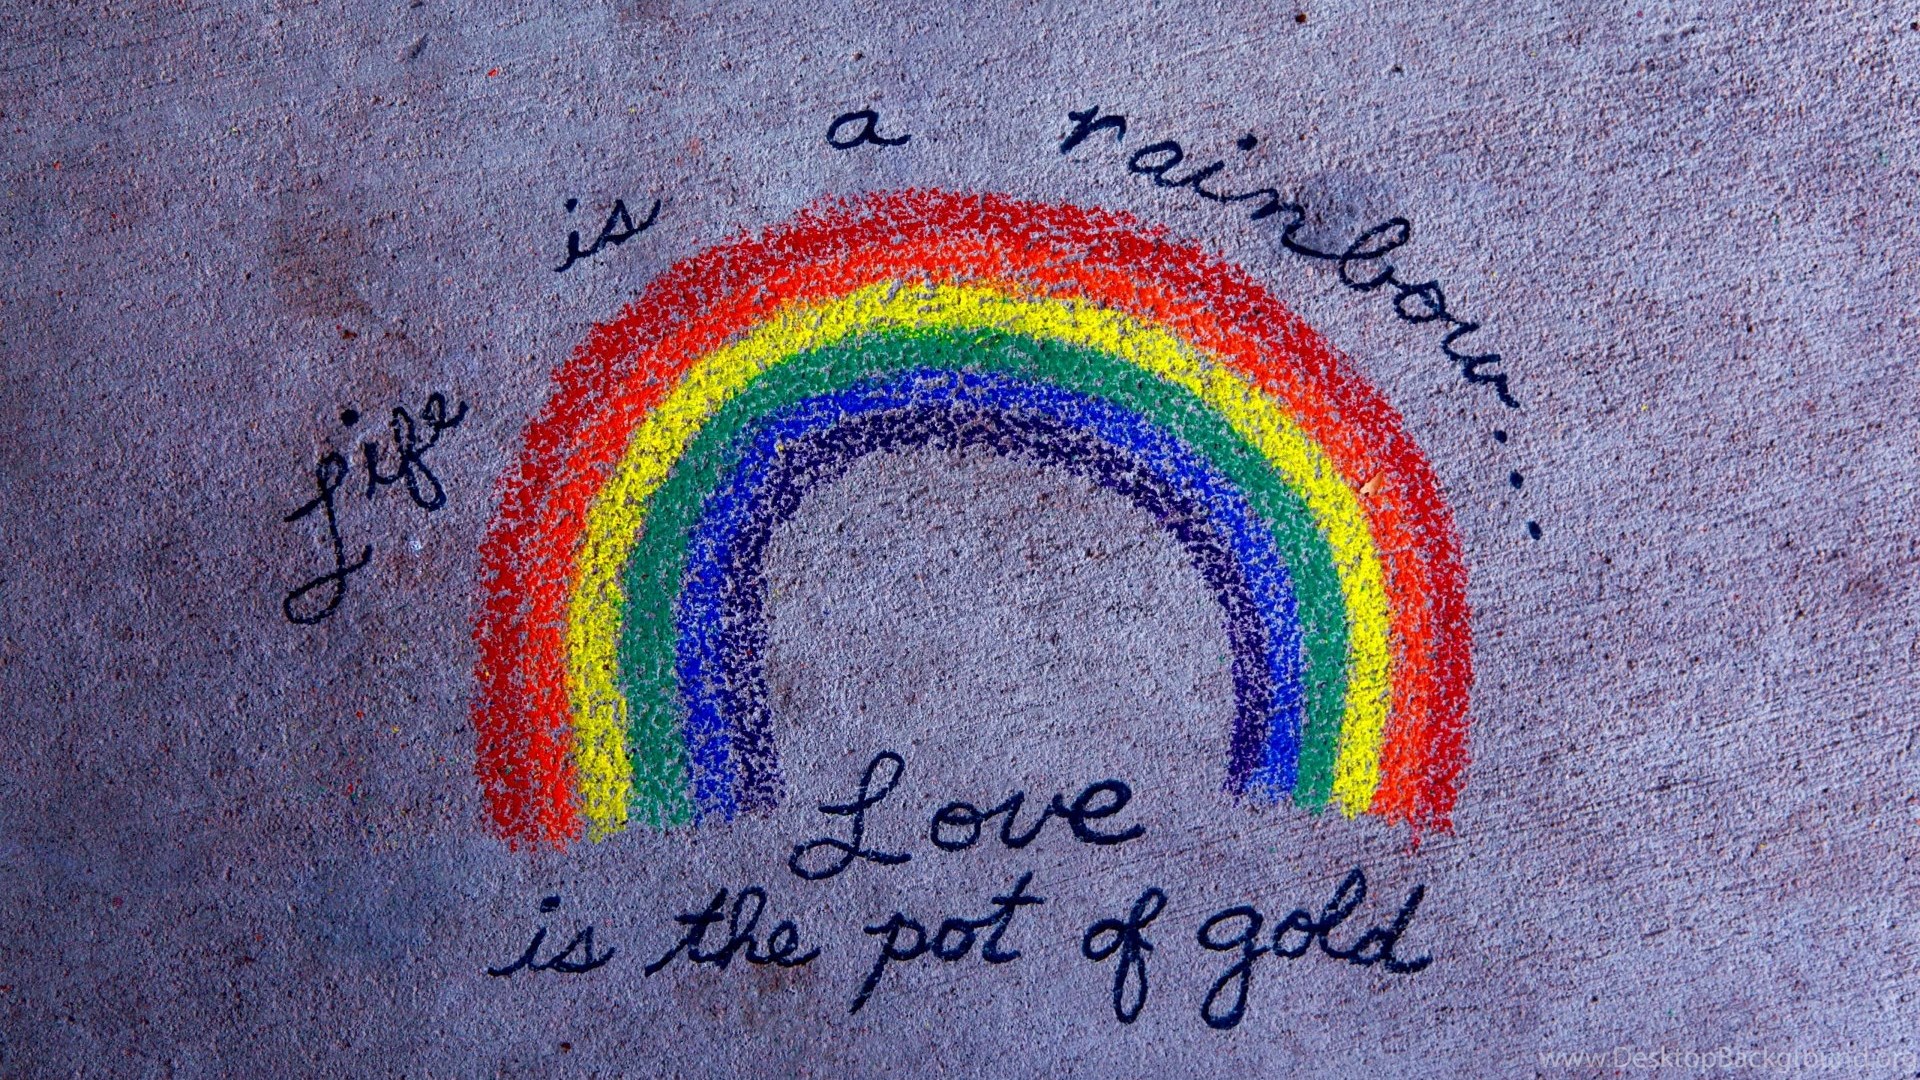 Life is a rainbow...
Love
is the pot of gold
www.DesktopBackground.org